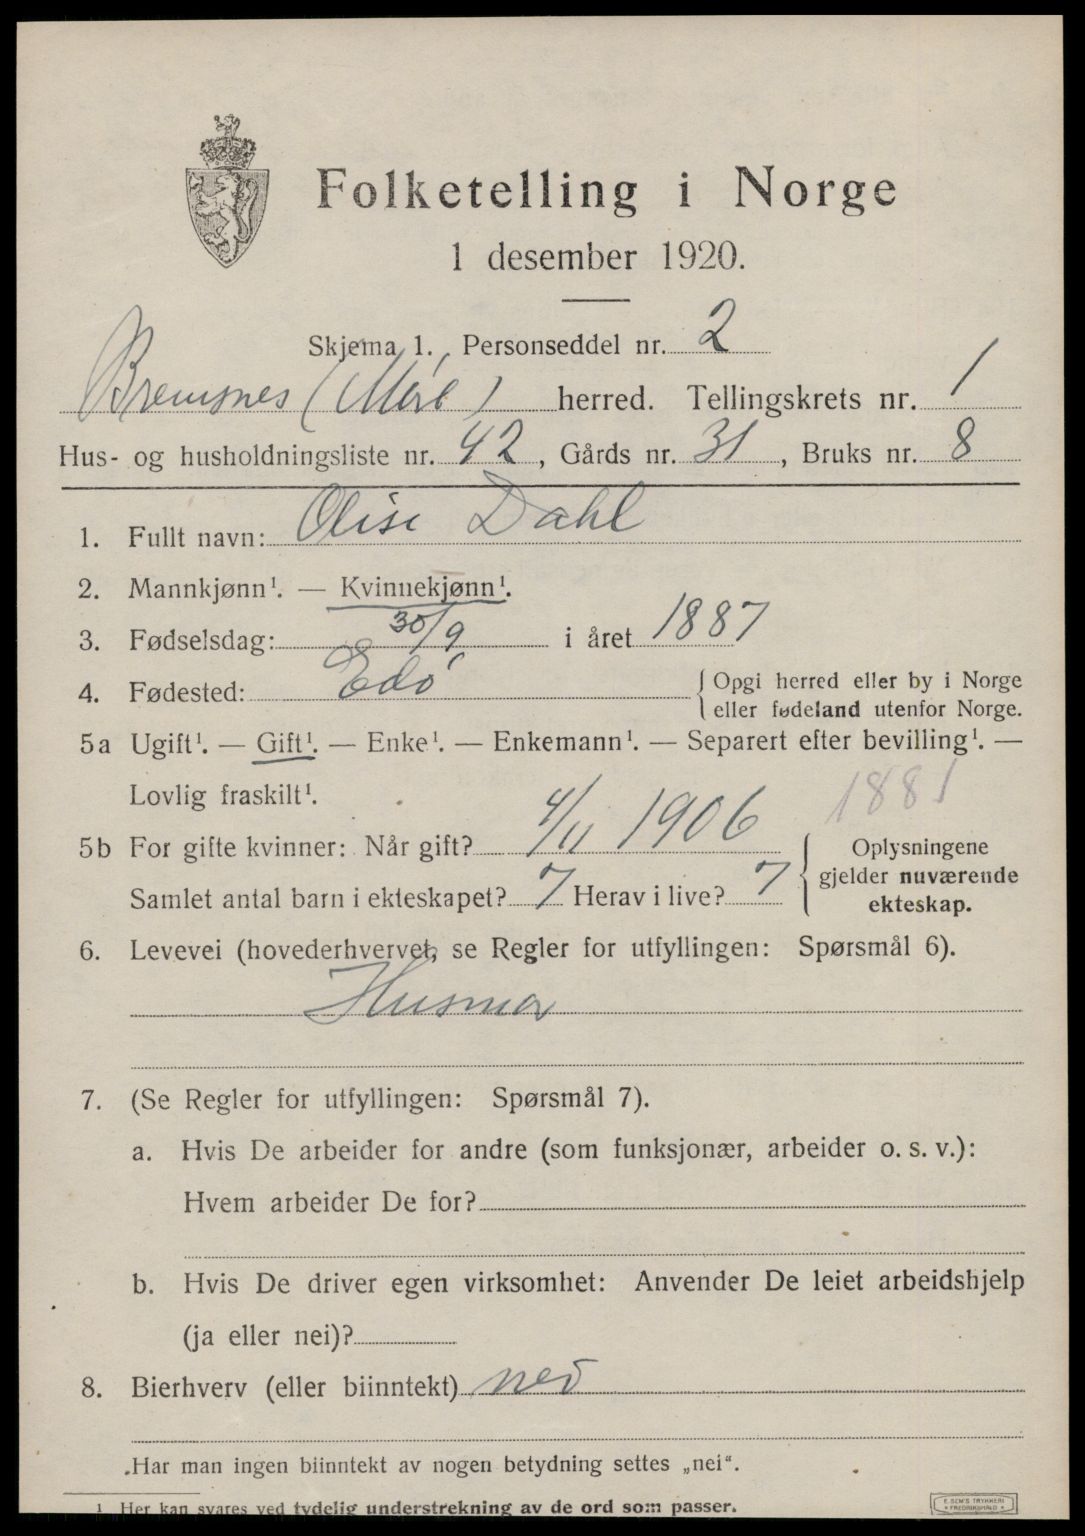 Folketelling i Norge
1 desember 1920.
Skjema 1. Personseddel nr. 2
Bremsnes (Møre) herred. Tellingskrets nr. 1
Hus- og husholdningsliste nr. 42, Gårds nr. 31, Bruks nr. 8
1. Fullt navn: Olise Dahl
2. Mannkjønn¹. — Kvinnekjønn¹.
3. Fødselsdag: 30/9 i året 1887
4. Fødested: Edø { Opgi herred eller by i Norge
eller fødeland utenfor Norge.
5a Ugift¹. — Gift¹. — Enke¹. — Enkemann¹. — Separert efter bevilling¹. —
Lovlig fraskilt¹. 1881
5b For gifte kvinner: Når gift? 4/11 1906 Oplysningene
Samlet antal barn i ekteskapet? 7 Herav i live? 7 { gjelder nuværende
ekteskap.
6. Levevei (hovederhvervet, se Regler for utfyllingen: Spørsmål 6).
Husmor
7. (Se Regler for utfyllingen: Spørsmål 7).
a. Hvis De arbeider for andre (som funksjonær, arbeider o. s. v.):
Hvem arbeider De for?
b. Hvis De driver egen virksomhet: Anvender De leiet arbeidshjelp
(ja eller nei)?
8. Bierhverv (eller biinntekt) nei
Har man ingen biinntekt av nogen betydning settes „nei“.
¹ Her kan svares ved tydelig understrekning av de ord som passer.
E. SEM'S TRYKKERI
FREDRIKSHALD